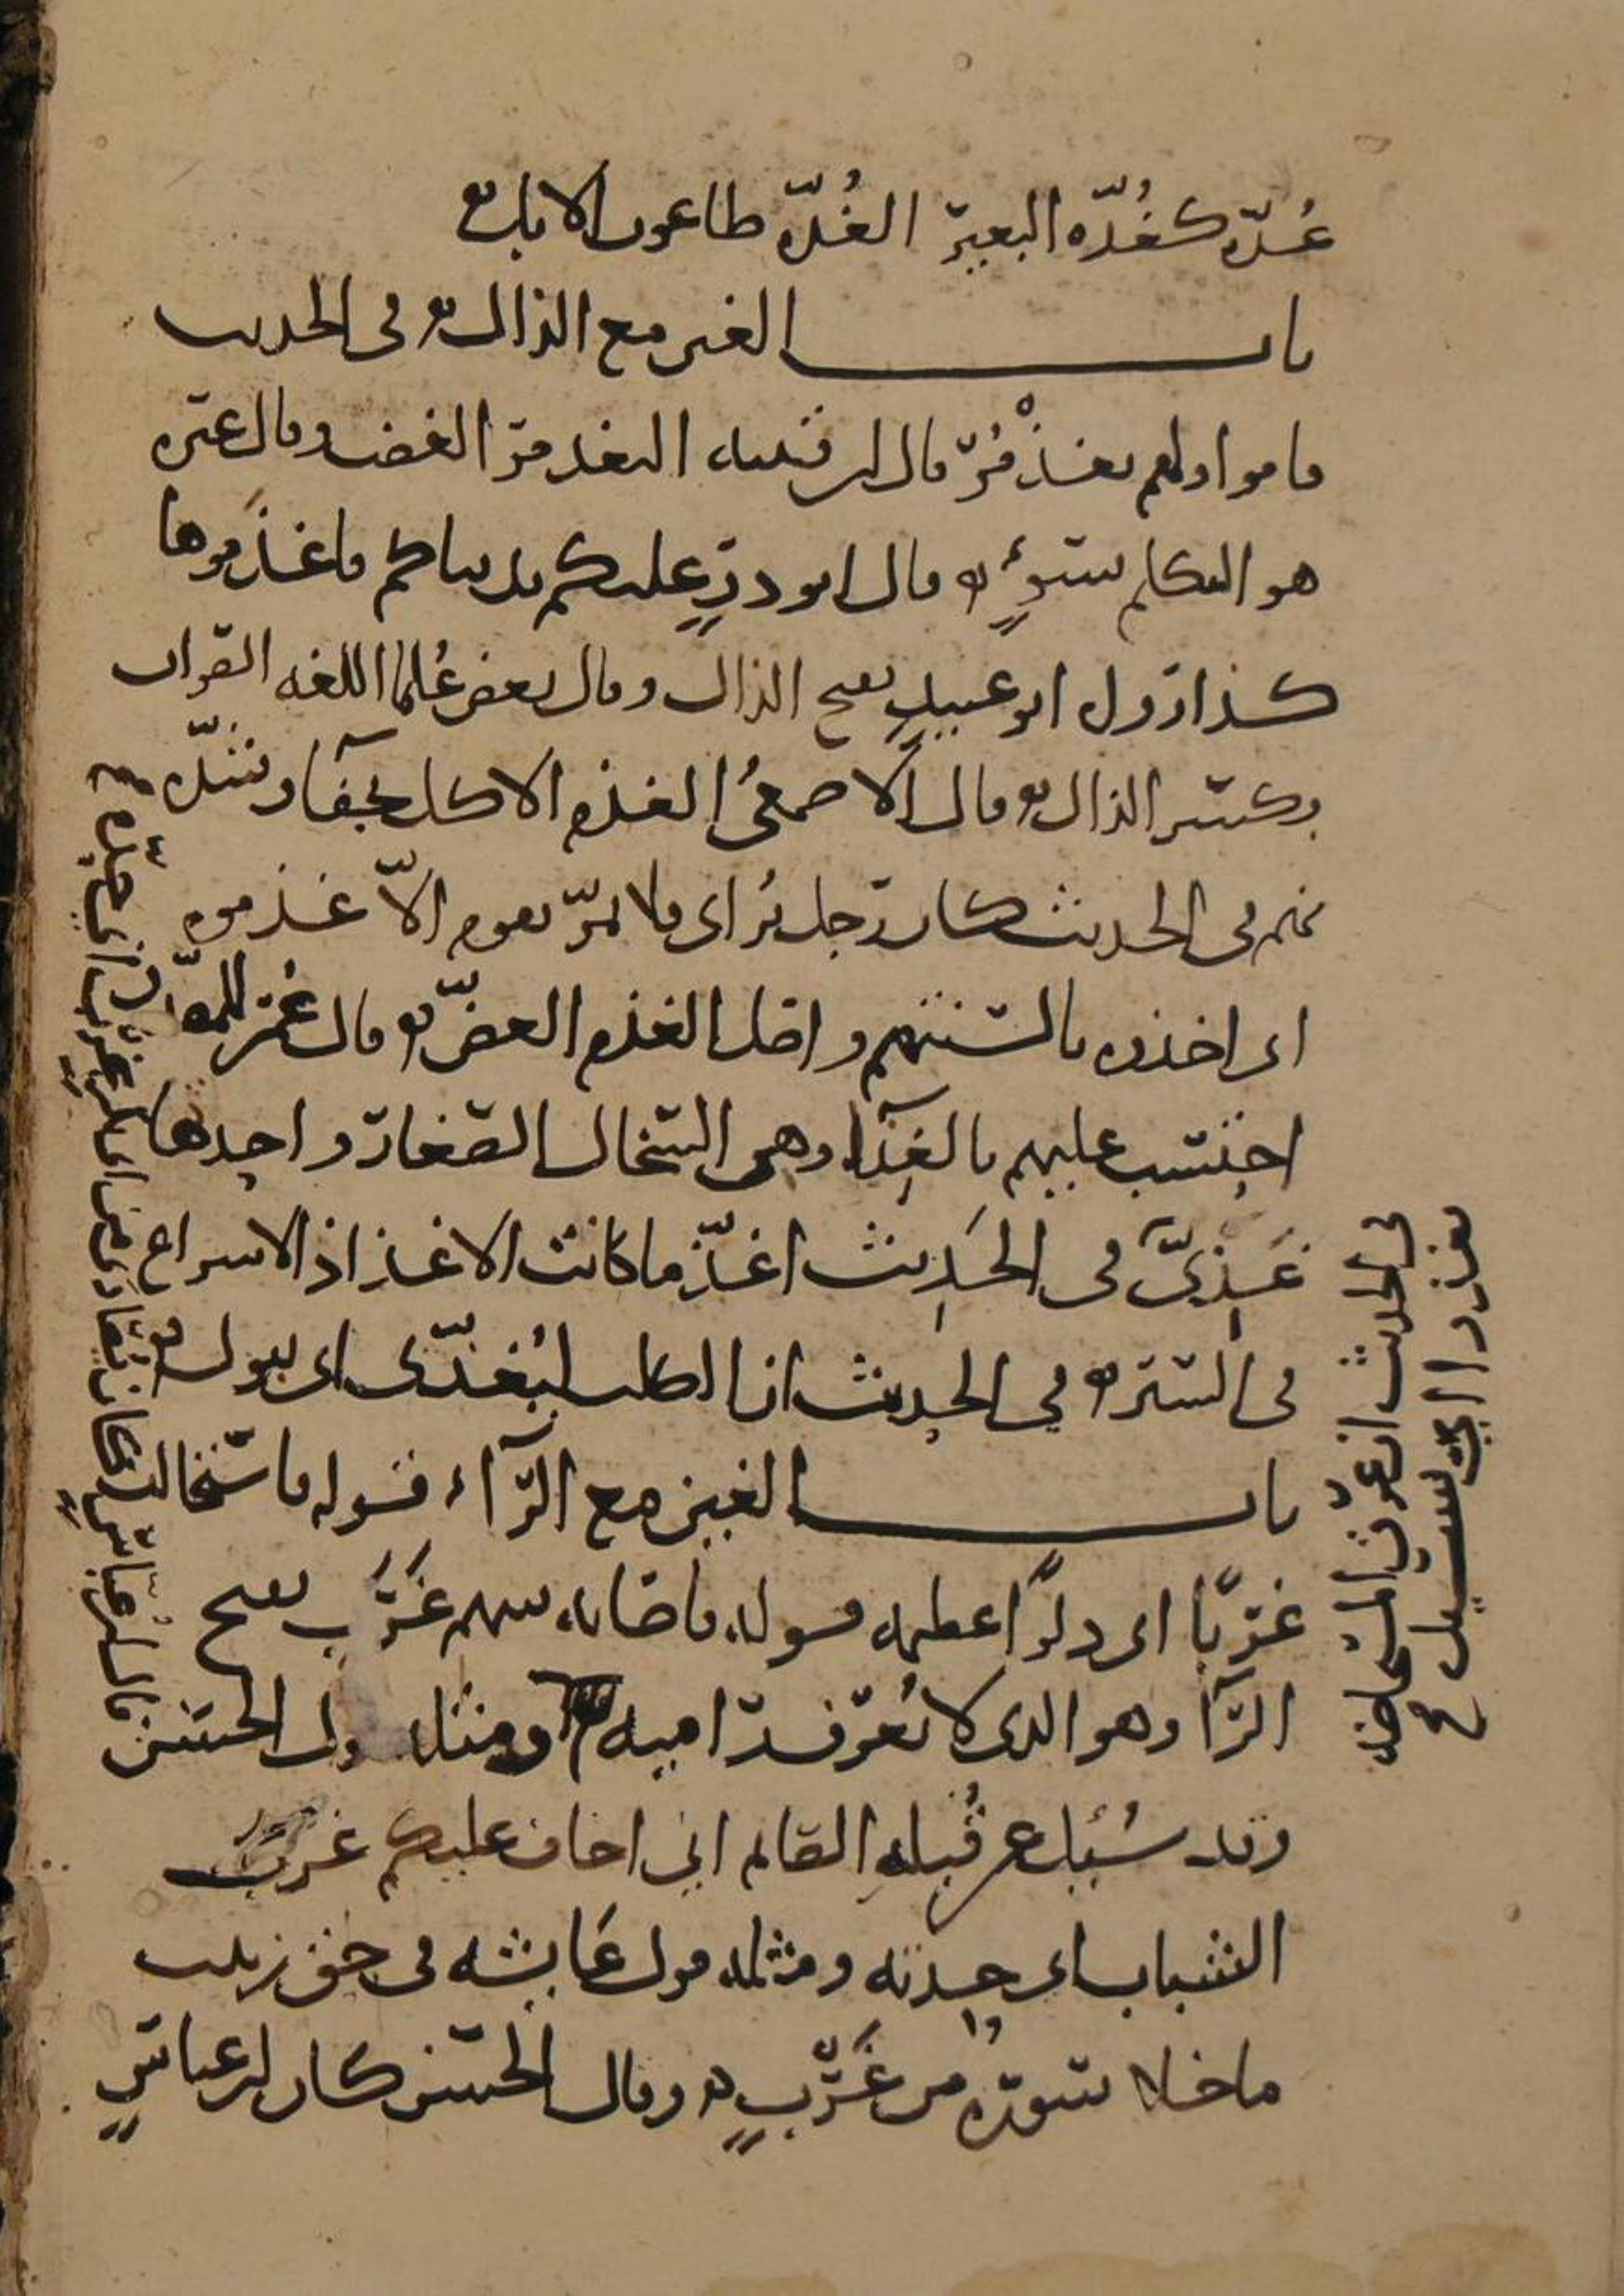 غُدّه كغُدّه البعير الغُدّه طاعون الابل
باب الغين مع الذال في الحديث
قاموا ولهم تغذْمُر قال ابن قتيبه التغذمر الغضب وقال غيره
هو التكلم بسوءٍ قال ابو ذرٍ عليكم بدنياكم فاغذَموها
كذا رول ابو عبيدٍ بفتح الذال وقال بعض عُلما اللغه الصواب
بكسر الذال قال الاصمعيُ الغذم الاكل بجفآ وشدّه
نهم في الحديث كان رجل يُرائ فلا يمرّ بقوم الاّ غذموه
اى اخذوه بالسنتهم واصل الغذم العضّ قال عُمر للمصدّق
احتسب عليهم بالغِذآ وهى السخال الصغار واحدها
غَذِىّ في الحَدِيث اغذّ ما كانت الاغذاذ الاسراع
فى السير في الحديث اذا الكلب ليُغذّى اى يبول
باب الغين مع الرّآء قوله فاستحالت
غربًا اى دلوًا عظيمه قوله فاصابه سهم غَرَب بفتح
الرّآ وهو الذى لا يُعرف راميه ومثله قول الحسن
وقد سُئِل عن قُبلهِ الصائم انى اخاف عليكم غرب
الشباب اى حِدته ومثله قول عَايشه فى حق زينب
ما خلا سوره من غَرْبٍ وقال الحسن كان ابن عباسٍ
في الحديث ان عرق المستحاضه
يغذوا اى يسيل